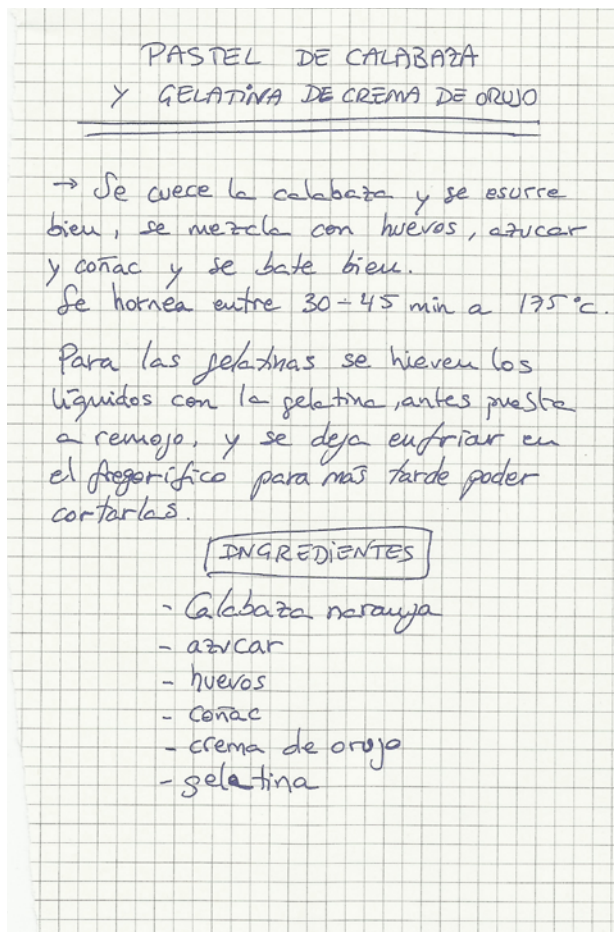 PASTEL DE CALABAZA
Y GELATINA DE CREMA DE ORUJO
→ Se cuece la calabaza y se escurre
bien, se mezcla con huevos, azucar
y coñac y se bate bien.
Se hornea entre 30-45 min a 175°c.
Para las gelatinas se hieven los
líquidos con la gelatina, antes puesta
a remojo, y se deja enfriar en
el fregorífico para más tarde poder
cortarlas.
INGREDIENTES
- Calabaza naranja
- azucar
- huevos
- coñac
- crema de orujo
- gelatina